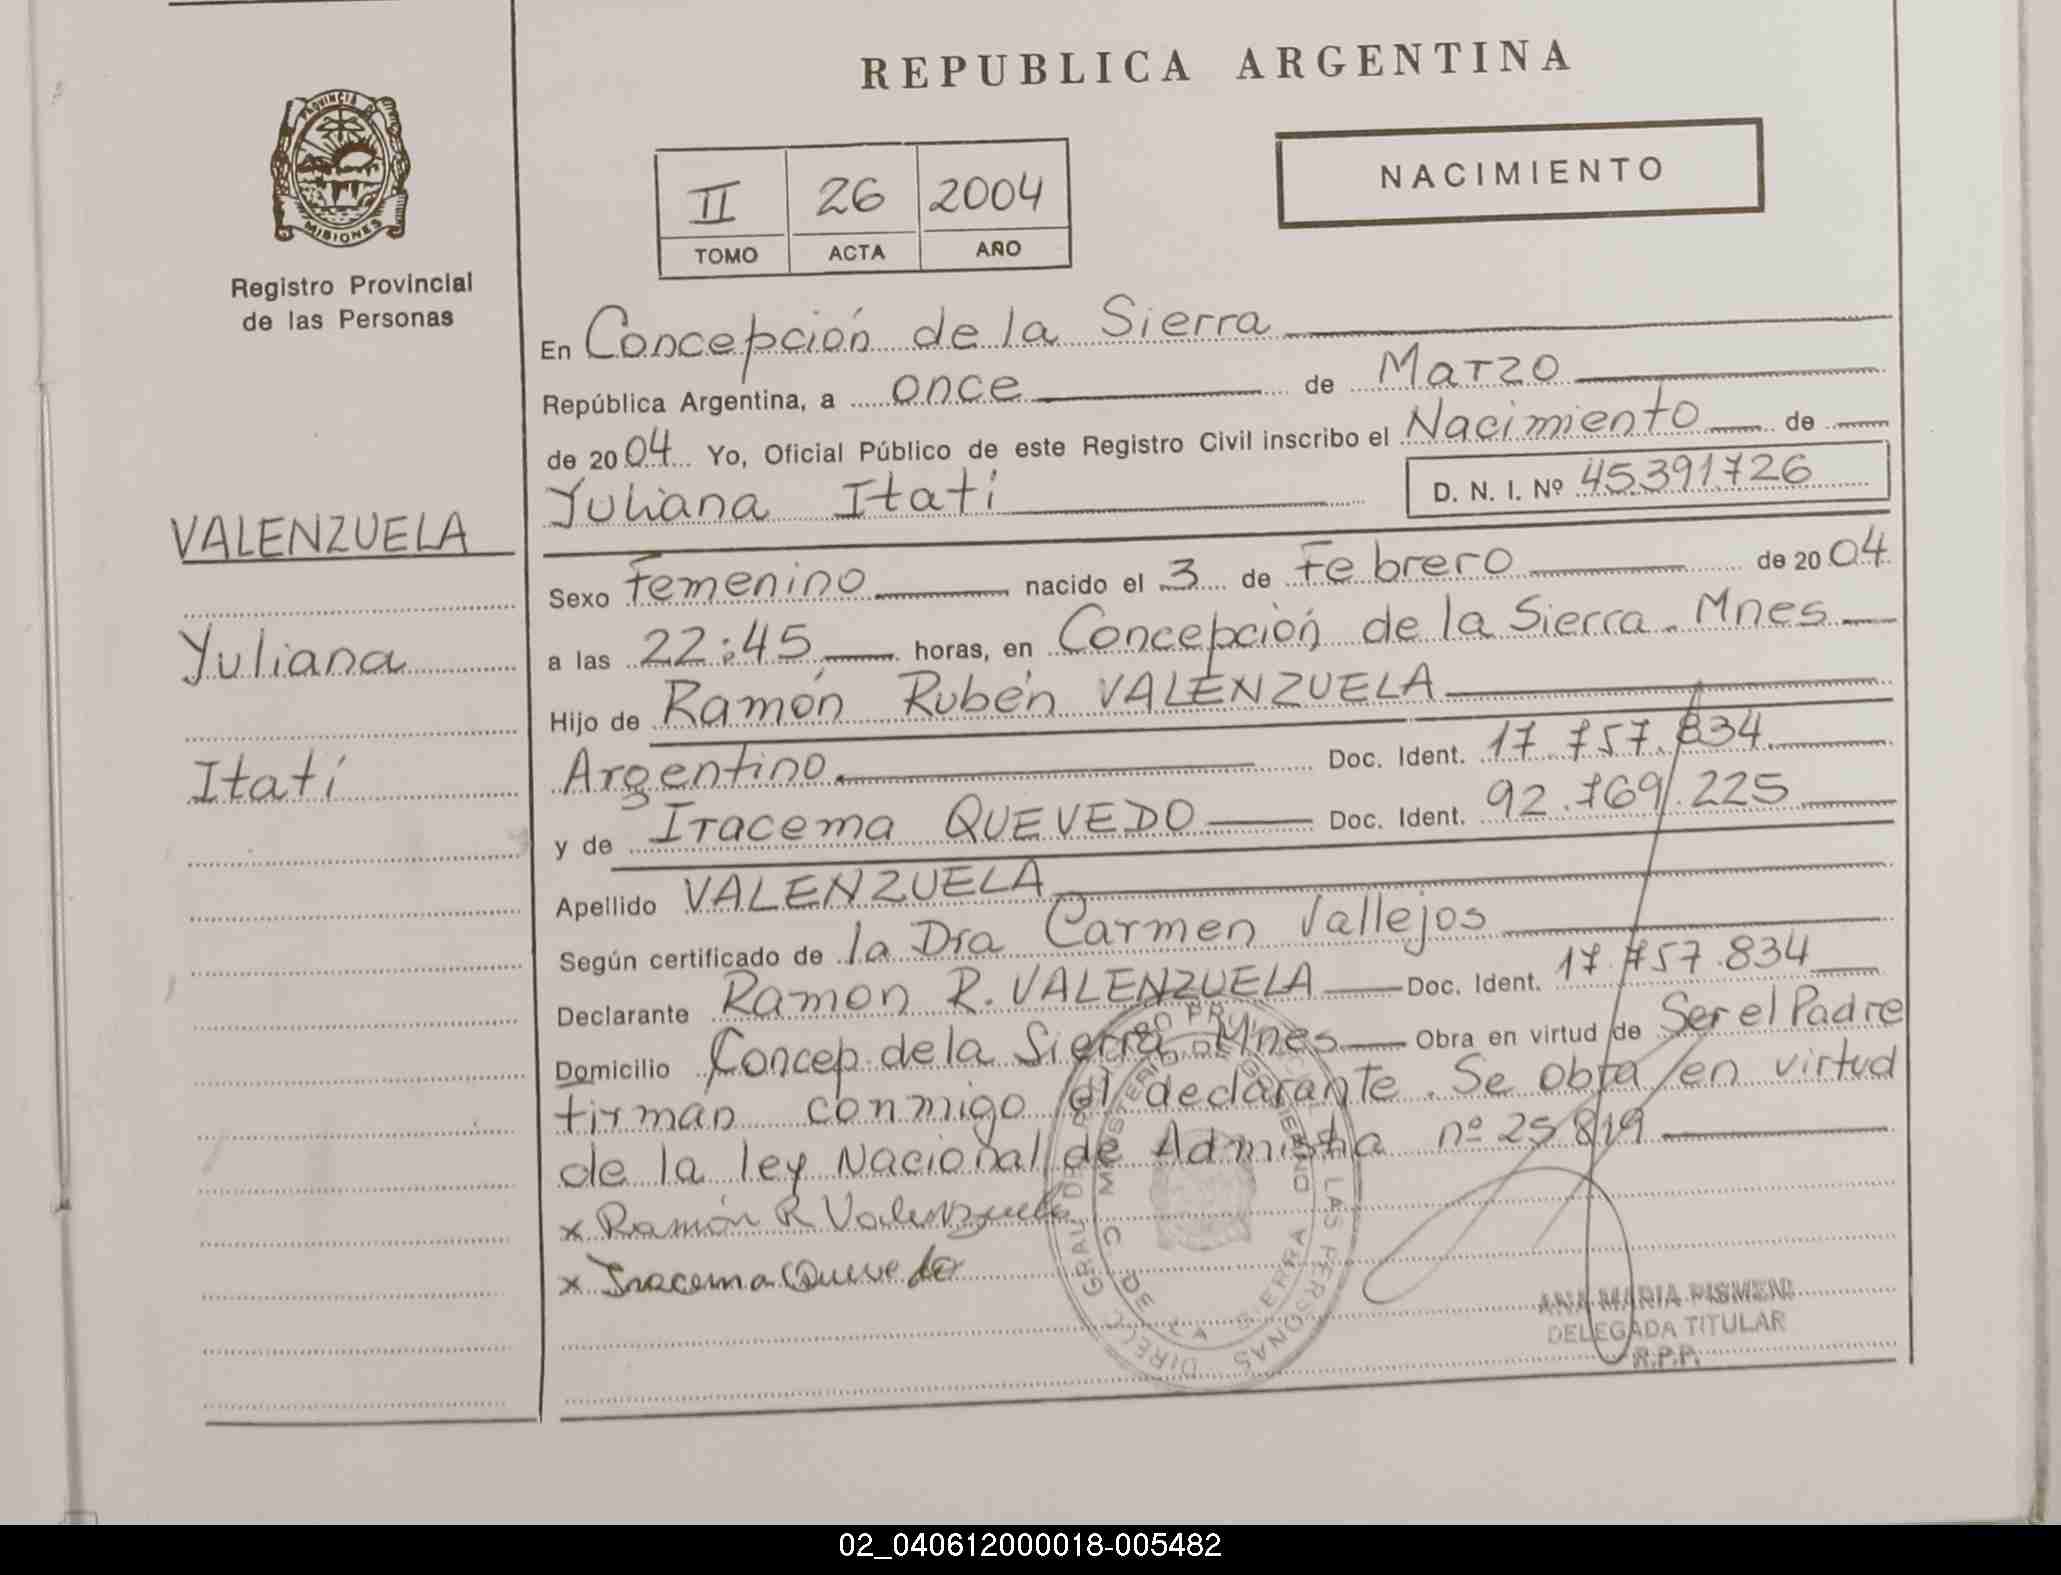 REPUBLICA ARGENTINA
PROVINCIA DE
MISIONES
Registro Provincial
de las Personas
II 26 2004
TOMO ACTA AÑO
NACIMIENTO
VALENZUELA
Yuliana
Itatí
En Concepción de la Sierra
República Argentina, a once de Marzo
de 2004 Yo, Oficial Público de este Registro Civil inscribo el Nacimiento de
Yuliana Itatí D. N. I. Nº 45.391.726
Sexo Femenino nacido el 3 de Febrero de 2004
a las 22:45 horas, en Concepción de la Sierra. Mnes
Hijo de Ramón Rubén VALENZUELA
Argentino Doc. Ident. 17.757.834
y de Iracema QUEVEDO Doc. Ident. 92.769.225
Apellido VALENZUELA
Según certificado de la Dra Carmen Vallejos
Declarante Ramon R. VALENZUELA Doc. Ident. 17.757.834
Domicilio Concep. de la Sierra Mnes Obra en virtud de Ser el Padre
firman conmigo el declarante. Se obra en virtud
de la ley Nacional de Admistia nº 25819
x Ramón R Valenzuela
x Iracema Quevedo
ANA MARIA PISMENI
DELEGADA TITULAR
R.P.P.
02_040612000018-005482